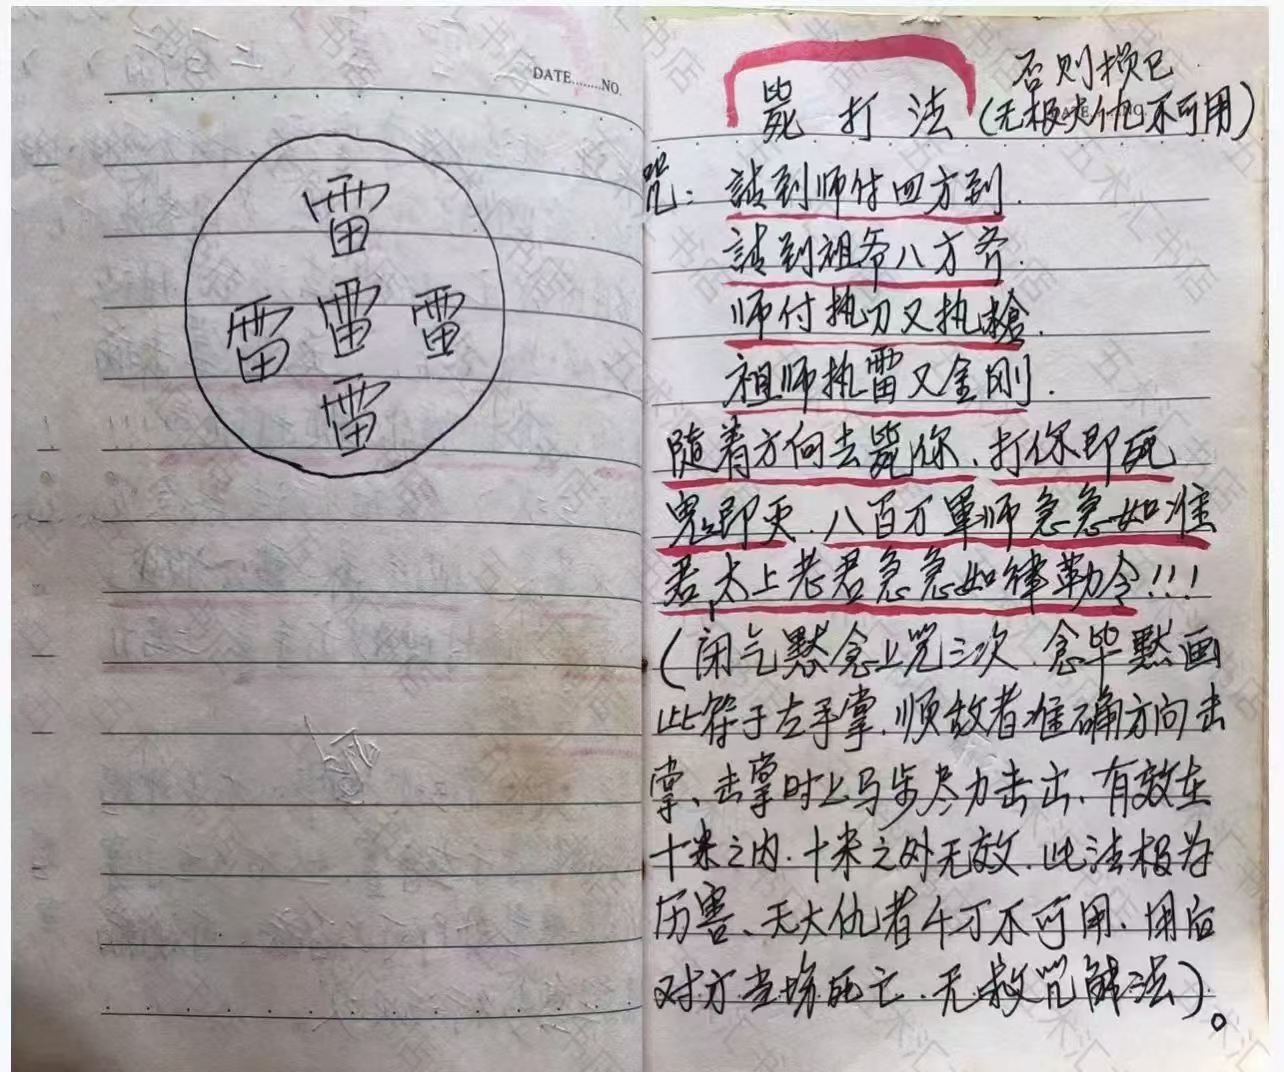 DATE........NO.
雷
雷 雷 雷
雷
否则损己
毙打法(无极大仇不可用)
咒:請到师付四方到.
請到祖爷八方齐.
师付执刀又执槍.
祖师执雷又金刚.
随着方向去毙你、打你即死
鬼即灭.八百万軍师急急如准
君,太上老君急急如律勒令!!!
(闭气默念上咒三次.念毕默画
此符于左手掌.顺敌者准确方向击
掌、击掌时上马步尽力击出、有效在
十米之内.十米之外无效.此法极为
厉害、无大仇者千万不可用.用后
对方当场死亡.无救咒解法)。
五术汇书店